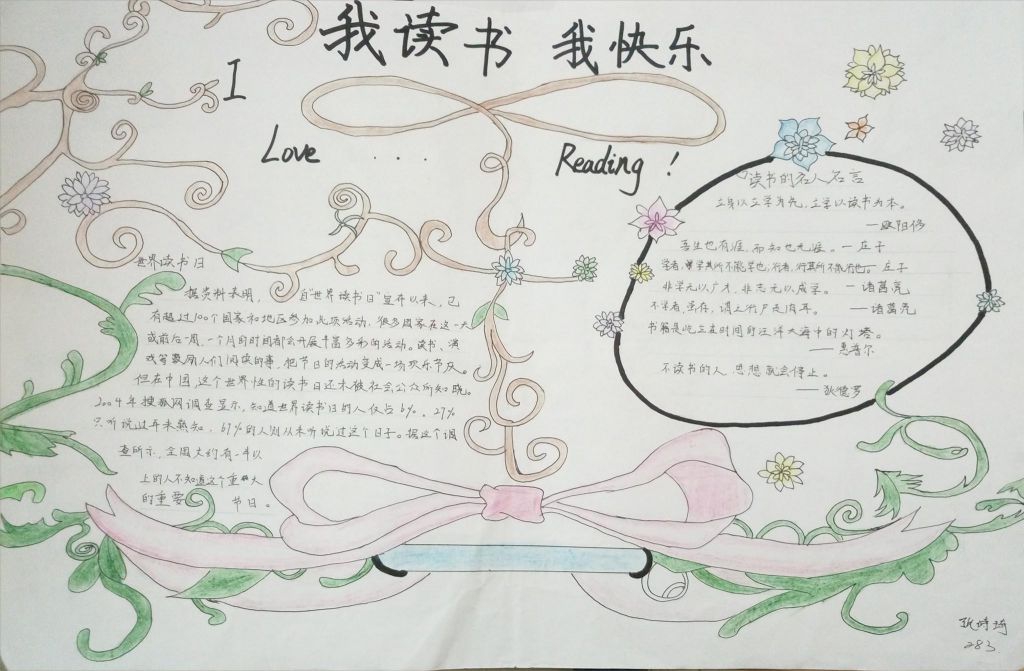 我读书 我快乐
I
Love ....
Reading!
世界读书日
据资料表明, 自“世界读书日”宣开以来,已
有超过100个国家和地区参加此项活动,很多国家在这一天
或前后一周、一个月的时间都会开展丰富多彩的活动。读书、演
戏等鼓励人们阅读的事,把节日的活动变成一场欢乐节庆。
但在中国,这个世界性的读书日还未被社会公众所知晓。
2004年搜狐网调查显示,知道世界读书日的人仅占6%。27%
只听说过并未熟知,67%的人则从未听说过这个日子。据这个调
查所示,全国大约有一半以
上的人不知道这个重大
的重要 节日。
读书的名人名言
立身以立学为先,立学以读书为本。
—欧阳修
吾生也有涯,而知也无涯。—庄子
学者,学其所不能学也;行者,行其所不能行也。—庄子
非学无以广才,非志无以成学。—诸葛亮
不学者,虽存,谓之行尸走肉耳。——诸葛亮
书籍是屹立在时间的汪洋大海中的灯塔。
——惠普尔
不读书的人 思想就会停止。
——狄德罗
283